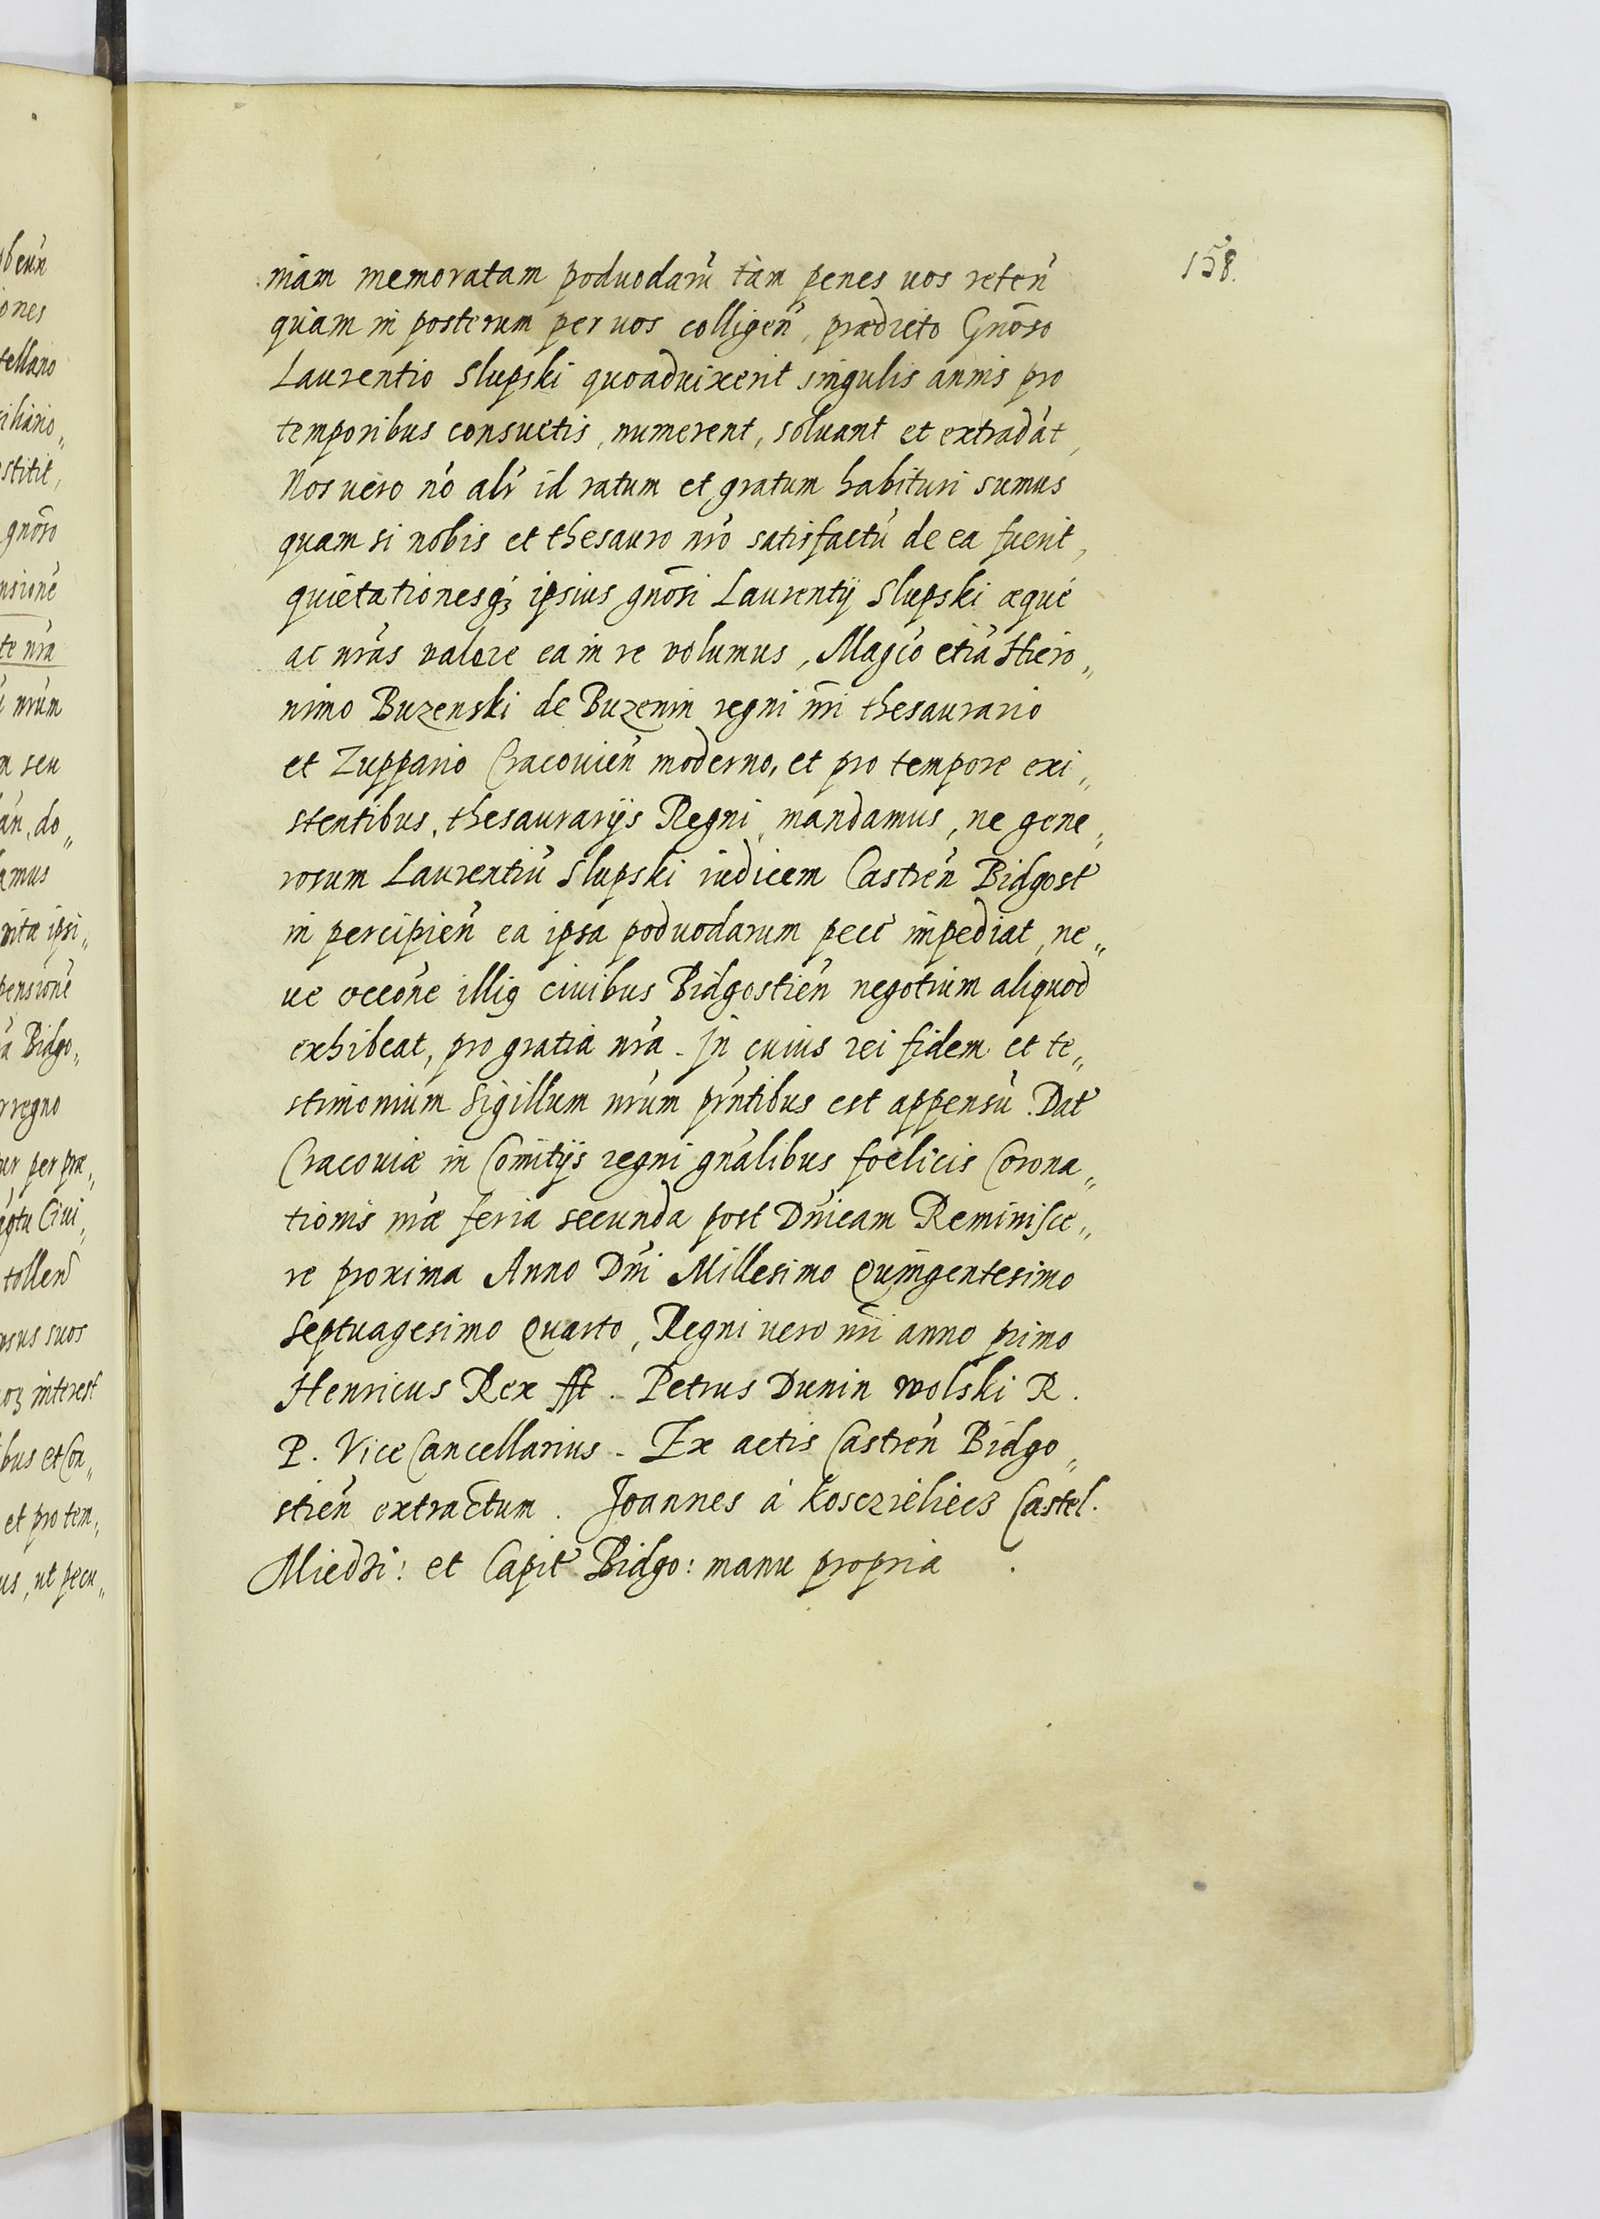 158.
niam memoratam poduodarũ tàm penes uos reteñ
quàm in posterum per uos colligeñ, prædicto Gnõso
Laurentio Slupski quoaduixerit singulis annis pro
temporibus consuetis, numerent, soluant et extradãt,
Nos uero nõ alr id ratum et gratum habituri sumus
quam si nobis et thesauro nrõ satisfactũ de ea fuerit,
quietationesq3 ipsius gnõsi Laurentÿ Slupski æquè
ac nrãs valere ea in re volumus, Magco etiã Hiero„
nimo Buzenski de Buzenin regni nri thesaurario
et Zuppario Cracouieñ moderno, et pro tempore exi„
stentibus, thesaurarÿs Regni, mandamus, ne gene„
rosum Laurentiũ Slupski iudicem Castreñ Bidgost
in percipieñ ea ipsa poduodarum pecc impediat, ne„
ue occõne illiq ciuibus Bidgostieñ negotium aliquod
exhibeat, pro gratia nrã. In cuius rei fidem et te„
stimonium Sigillum nrũm pñtibus est appensũ. Dat
Cracouiæ in Comitÿs regni gnãlibus fœlicis Corona„
tionis nræ feria secunda post Dnicam Reminisce„
re proxima Anno Dni Millesimo Quingentesimo
Septuagesimo Quarto, Regni uero nri anno primo
Henricus Rex sst. Petrus Dunin wolski R.
P. Vice Cancellarius. Ex actis Castreñ Bidgo„
stieñ extractum. Joannes à koscziéliecz Castel.
Miedzi: et Capit Bidgo: manu propria.
bus et Con„
et pro tem„
us, ut pecu„